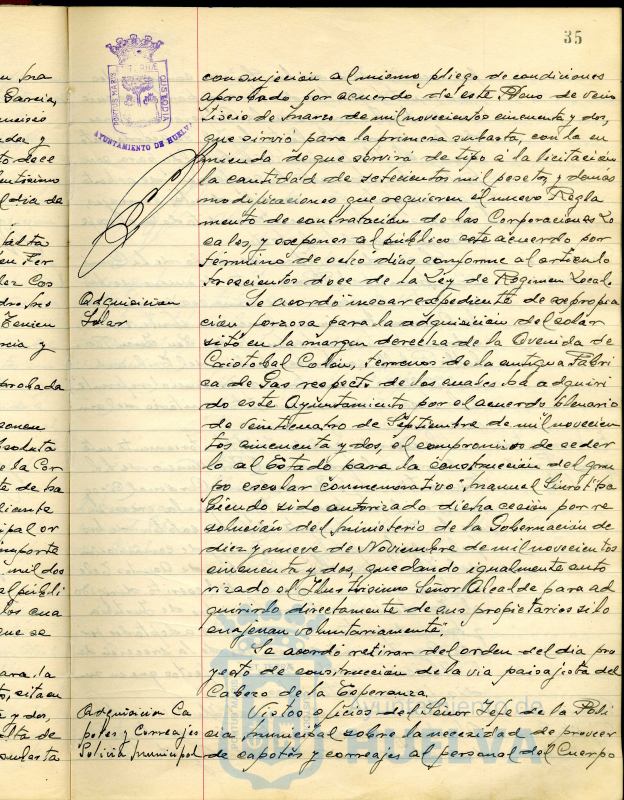 35
PORTUS MARIS
ET TERRÆ
CUSTODIA
AYUNTAMIENTO DE HUELVA
con sujeción al mismo pliego de condiciones
aprobado por acuerdo de este Pleno de vein
tiseis de marzo de mil novecientos cincuenta y dos,
que sirvió para la primera subasta, con la en
mienda de que servirá de tipo a la licitación
la cantidad de setecientas mil pesetas, y demás
modificaciones que requieren el nuevo Regla
mento de contratación de las Corporaciones Lo
cales, y exponer al público este acuerdo por
término de ocho días conforme al artículo
trescientos doce de la Ley de Régimen Local.
Adquisición
Solar
Se acordó incoar expediente de expropia
ción forzosa para la adquisición del solar
sito en la margen derecha de la Avenida de
Cristobal Colón, terrenos de la antigua Fabri
ca de Gas respecto de los cuales ha adquiri
do este Ayuntamiento por el acuerdo plenario
de veinticuatro de Septiembre de mil novecien
tos cincuenta y dos, el compromiso de ceder
lo al Estado para la construcción del gru
po escolar "conmemorativo" Manuel Siurot, ha
biendo sido autorizado dicha cesión por re
solución del Ministerio de la Gobernación de
diez y nueve de Noviembre de mil novecientos
cincuenta y dos, quedando igualmente auto
rizado el Ilustrísimo Señor Alcalde para ad
quirirlo directamente de sus propietarios si lo
enajenan voluntariamente.
Se acordó retirar del orden del día pro
yecto de construcción de la vía paisajista del
Cabezo de la Esperanza.
Adquisición Ca
potes y Correajes
Policía Municipal
Vistos oficios del Señor Jefe de la Poli
cía Municipal sobre la necesidad de proveer
de capotes y correajes al personal del Cuerpo
Ayuntamiento de
HUELVA